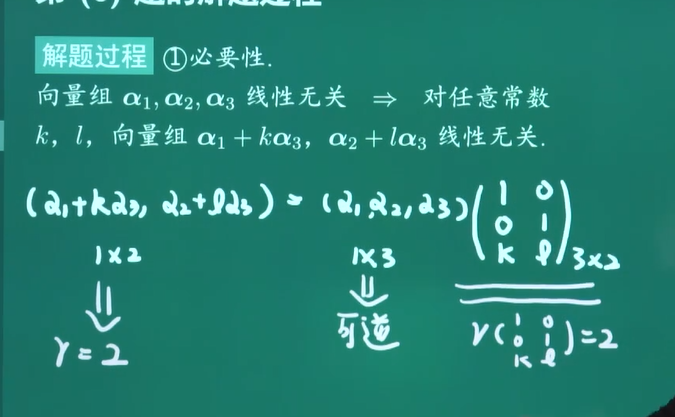 解题过程 ①必要性.
向量组 α₁, α₂, α₃ 线性无关 ⇒ 对任意常数
k, l, 向量组 α₁ + kα₃, α₂ + lα₃ 线性无关.
(α₁+kα₃, α₂+lα₃) = (α₁,α₂,α₃) ( 1 0
0 1
k l ) 3×2
1×2 1×3
⇓ ⇓
r = 2 可逆 r( 1 0
0 1
k l ) = 2